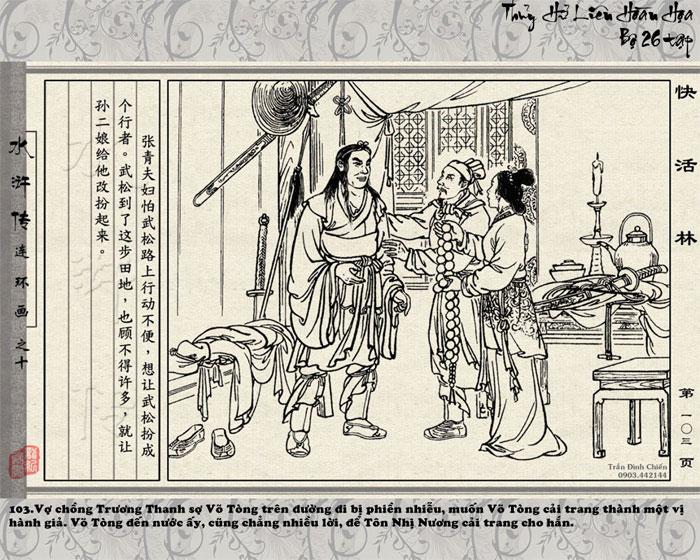 Thủy Hử Liên Hoàn Họa
Bộ 26 tập
快活林
水浒传连环画之十
张青夫妇怕武松路上行动不便，想让武松扮成
个行者。武松到了这步田地，也顾不得许多，就让
孙二娘给他改扮起来。
第一〇三页
Trần Đình Chiến
0903.442144
103.Vợ chồng Trương Thanh sợ Võ Tòng trên đường đi bị phiền nhiễu, muốn Võ Tòng cải trang thành một vị
hành giả. Võ Tòng đến nước ấy, cũng chẳng nhiều lời, để Tôn Nhị Nương cải trang cho hắn.